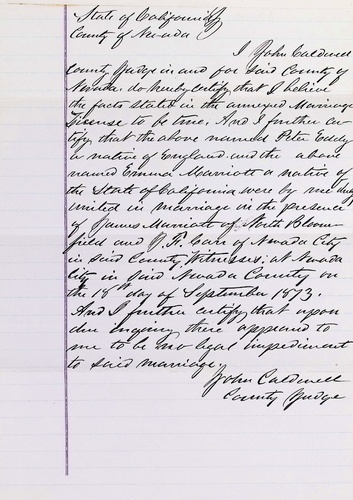 State of California }
County of Nevada }
I John Caldwell
County Judge in and for said County of
Nevada. do hereby certify that I believe
the facts stated in the annexed Marriage
License to be true. And I further cer-
tify that the above named Peter Eddy
a native of England and the above
named Emma Marriott a native of
the State of California were by me duly
united in marriage in the presence
of James Marriott of North Bloom-
field and J. F. Carr of Nevada City
in said County, Witnesses; at Nevada
City in said Nevada County on
the 18th day of September 1873.
And I further certify that upon
due inquiry there appeared to
me to be no legal impediment
to said marriage.
John Caldwell
County Judge